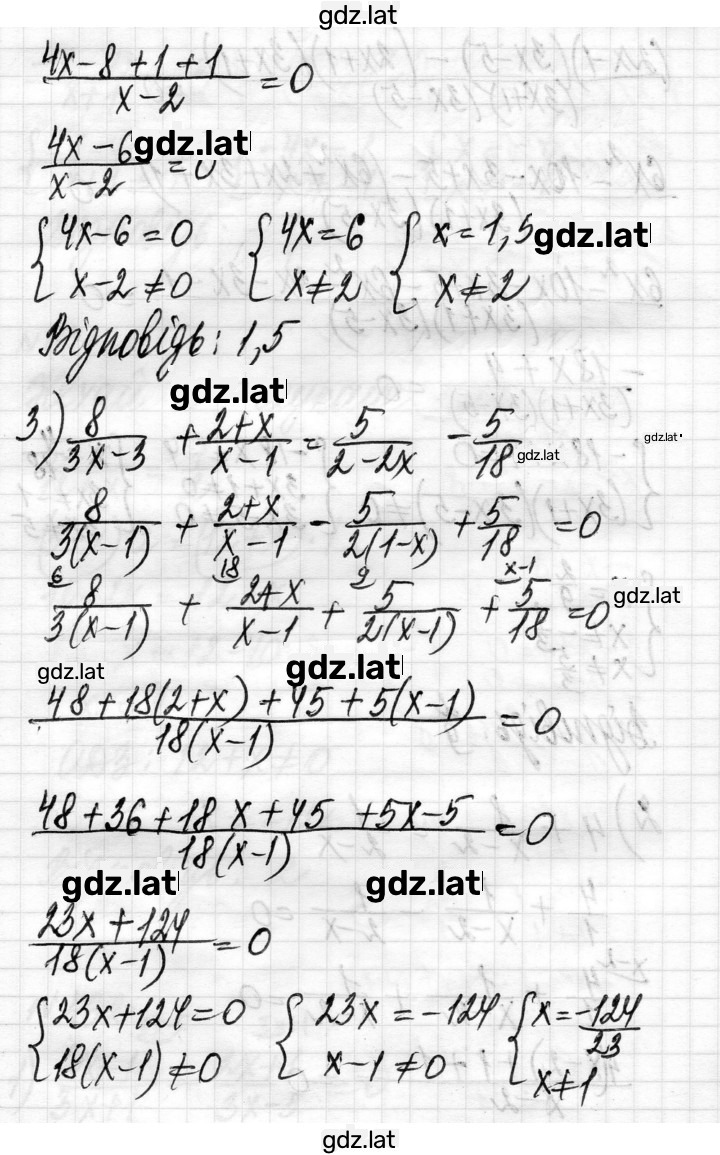 gdz.lat
(4x-8+1+1)/(x-2) = 0
(4x-6)/(x-2) = 0 gdz.lat
{4x-6=0 {4x=6 {x=1,5 gdz.lat
{x-2≠0 {x≠2 {x≠2
Відповідь: 1,5
gdz.lat
3) 8/(3x-3) + (2+x)/(x-1) = 5/(2-2x) - 5/18 gdz.lat gdz.lat
8/(3(x-1)) + (2+x)/(x-1) - 5/(2(1-x)) + 5/18 = 0
6 18 9 x-1
8/(3(x-1)) + (2+x)/(x-1) + 5/(2(x-1)) + 5/18 = 0 gdz.lat
gdz.lat gdz.lat
(48+18(2+x)+45+5(x-1))/(18(x-1)) = 0
(48+36+18x+45+5x-5)/(18(x-1)) = 0
gdz.lat gdz.lat
(23x+124)/(18(x-1)) = 0
{23x+124=0 {23x=-124 {x=-124/23
{18(x-1)≠0 {x-1≠0 {x≠1
gdz.lat